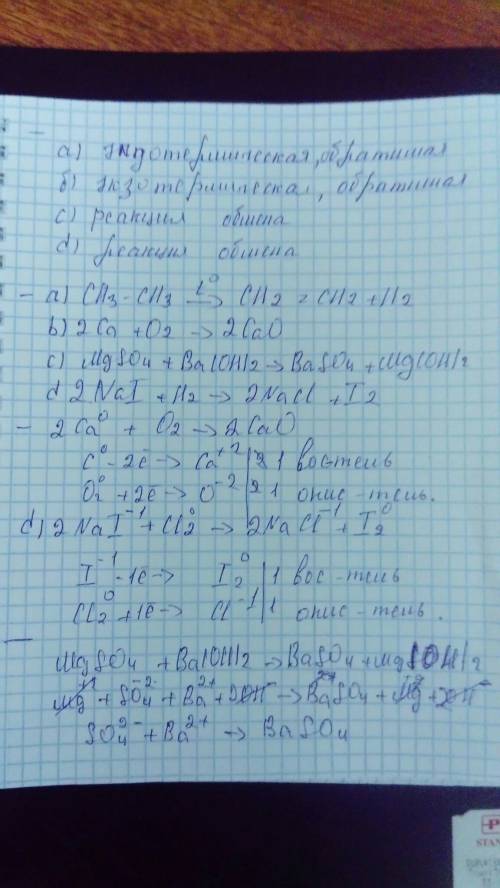 а) эндотермическая, обратимая
б) экзотермическая, обратимая
с) реакция обмена
d) реакция обмена
– а) CH3 - CH3 t° → CH2 = CH2 + H2
b) 2Ca + O2 → 2CaO
c) MgSO4 + Ba(OH)2 → BaSO4 + Mg(OH)2
d 2NaI + H2 → 2NaCl + I2
– 2Ca⁰ + O2 → 2CaO
C⁰ - 2ē → Ca⁺² | 2 1 вос-тель
O2⁰ + 2ē → O⁻² | 2 1 окис-тель.
d) 2NaI⁻¹ + Cl2⁰ → 2NaCl⁻¹ + I2⁰
I⁻¹ - 1ē → I2⁰ | 1 вос-тель
Cl2⁰ + 1ē → Cl⁻¹ | 1 окис-тель.
MgSO4 + Ba(OH)2 → BaSO4 + Mg(OH)2
Mg⁺² + SO4⁻² + Ba²⁺ + 2OH⁻ → BaSO4 + Mg + 2OH⁻
SO4²⁻ + Ba²⁺ → BaSO4
STAN